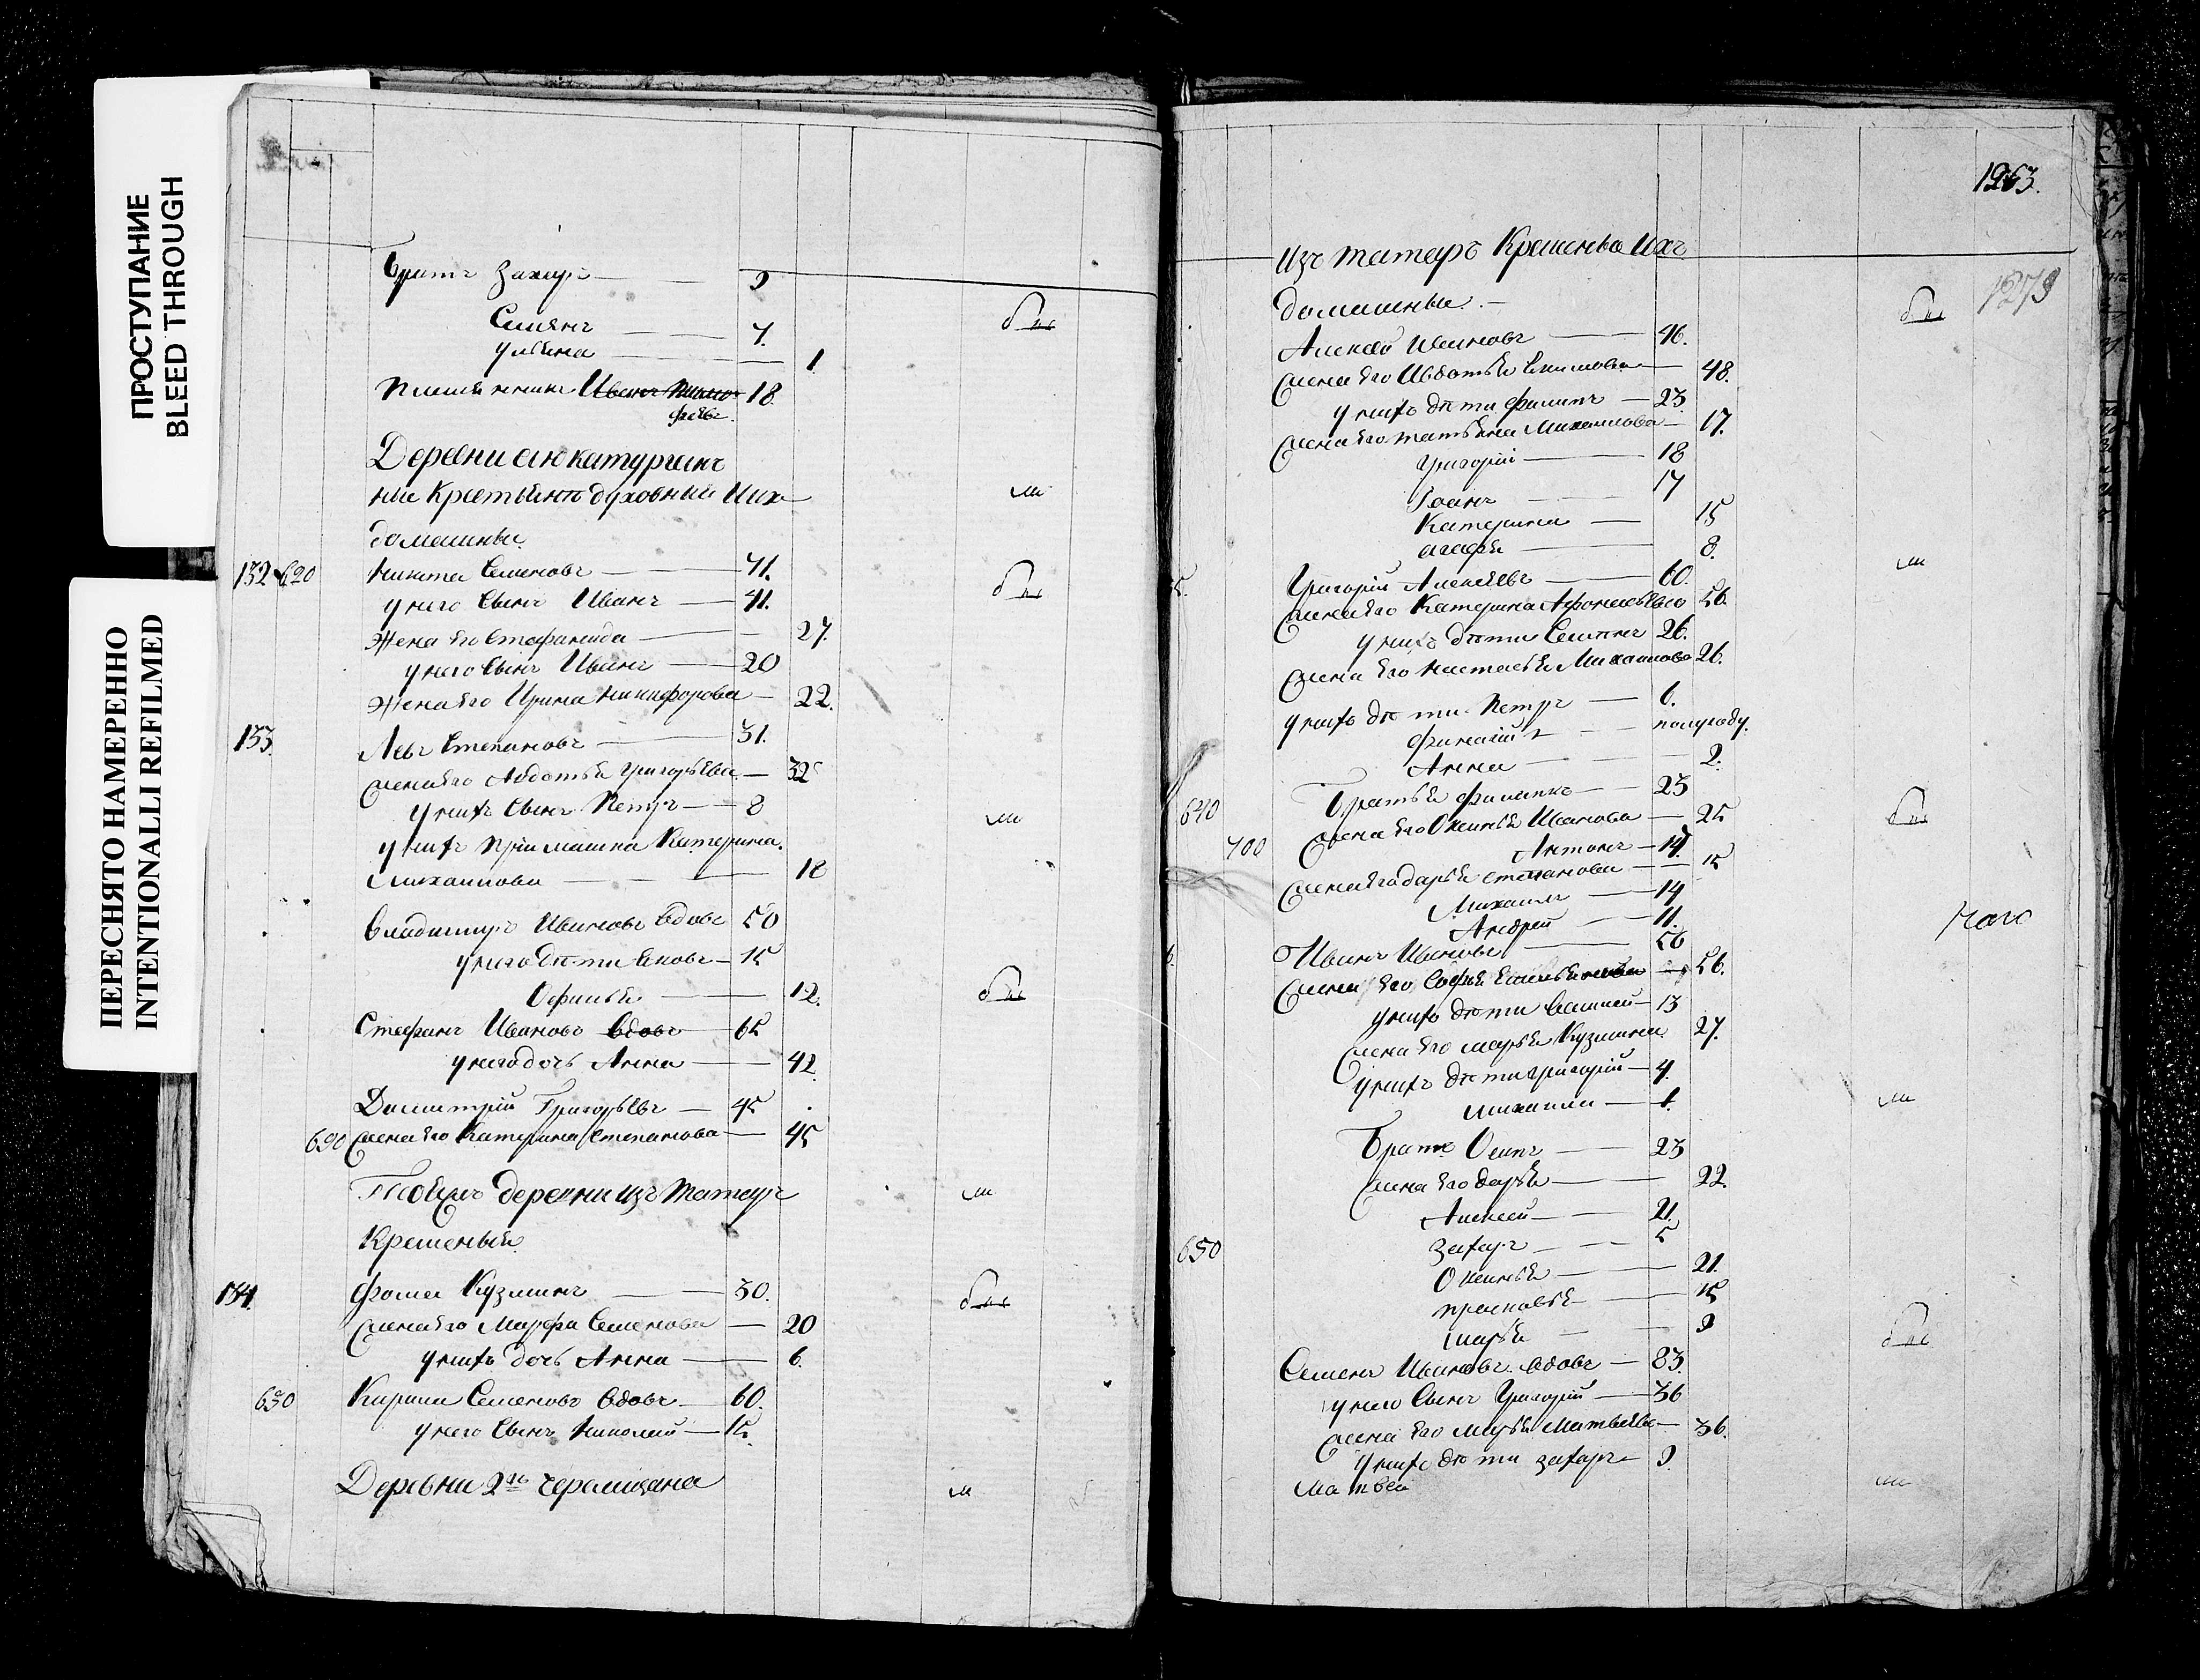 ПРОСТУПАНИЕ
BLEED THROUGH
ПЕРЕСНЯТО НАМЕРЕННО
INTENTIONALLI REFILMED
братъ Захаръ 9
Симянъ 7.
Ульяна 1
Племянникъ Иванъ Тимо 18.
феевъ.
Деревни
Крестьянъ духовныи Ихъ
домашныи.
132 620 Никита Семеновъ 71.
у него сынъ Иванъ 41.
Жена его Стефанида 27.
у него сынъ Иванъ 20
Жена его Ирина Никифорова 22.
133. Левъ Степановъ 31.
Жена его Авдотья Григорьева 32
у нихъ сынъ Петръ 8
у нихъ пріимашка Катерина.
Михаилова 18
Владимиръ Ивановъ вдовъ 50
у него дѣти 15
Офимья 12.
Стефанъ Ивановъ вдовъ 65
у него дочь Анна 42.
Димитрій Григорьевъ 45
690 Жена его Катерина Степанова 45
деревни изъ татаръ
Крещеныи.
134. Фома Кузминъ 30.
Жена его Марфа Семенова 20
у нихъ дочь Анна 6.
630 Кирила Семеновъ вдовъ 60.
у него сынъ Николай 15.
Деревни 2й Черемшана
1263.
1279
изъ татаръ Крещеныя Ихъ
домашныи.
Алексѣй Ивановъ 46.
Жена его Авдотья Екимова 48.
у нихъ дѣти Филипъ 23.
Жена его Татьяна Михаилова 17.
Григорій 18
Іоанъ 17
Катерина 15
Агафья 8.
Григорій Алексѣевъ 60.
Жена его Катерина 56.
у нихъ дѣти 26.
Жена его Настасья Михаилова 26.
у нихъ дѣти Петръ 6.
полугоду.
Анна 2.
640 Братья 23
Жена его Оксинья Иванова 25
700 Антонъ 17.
Жена его Дарья Степанова 15
Михаилъ 14
Андрей 11.
Иванъ Ивановъ 56
Жена его Софья 56.
у нихъ дѣти Василей 13
Жена его Марья Кузмина 27.
у нихъ дѣти Григорій 4.
Михаила 1.
Братъ Осипъ 23
Жена его Дарья 22.
Алексей 21.
650 Захаръ 5
Оксинья 21.
Прасковья 15
Марья 9
Семенъ Ивановъ вдовъ 83
у него сынъ Григорій 36
Жена его Марья Матвѣева 36.
у нихъ дѣти Захаръ 9.
Матвей